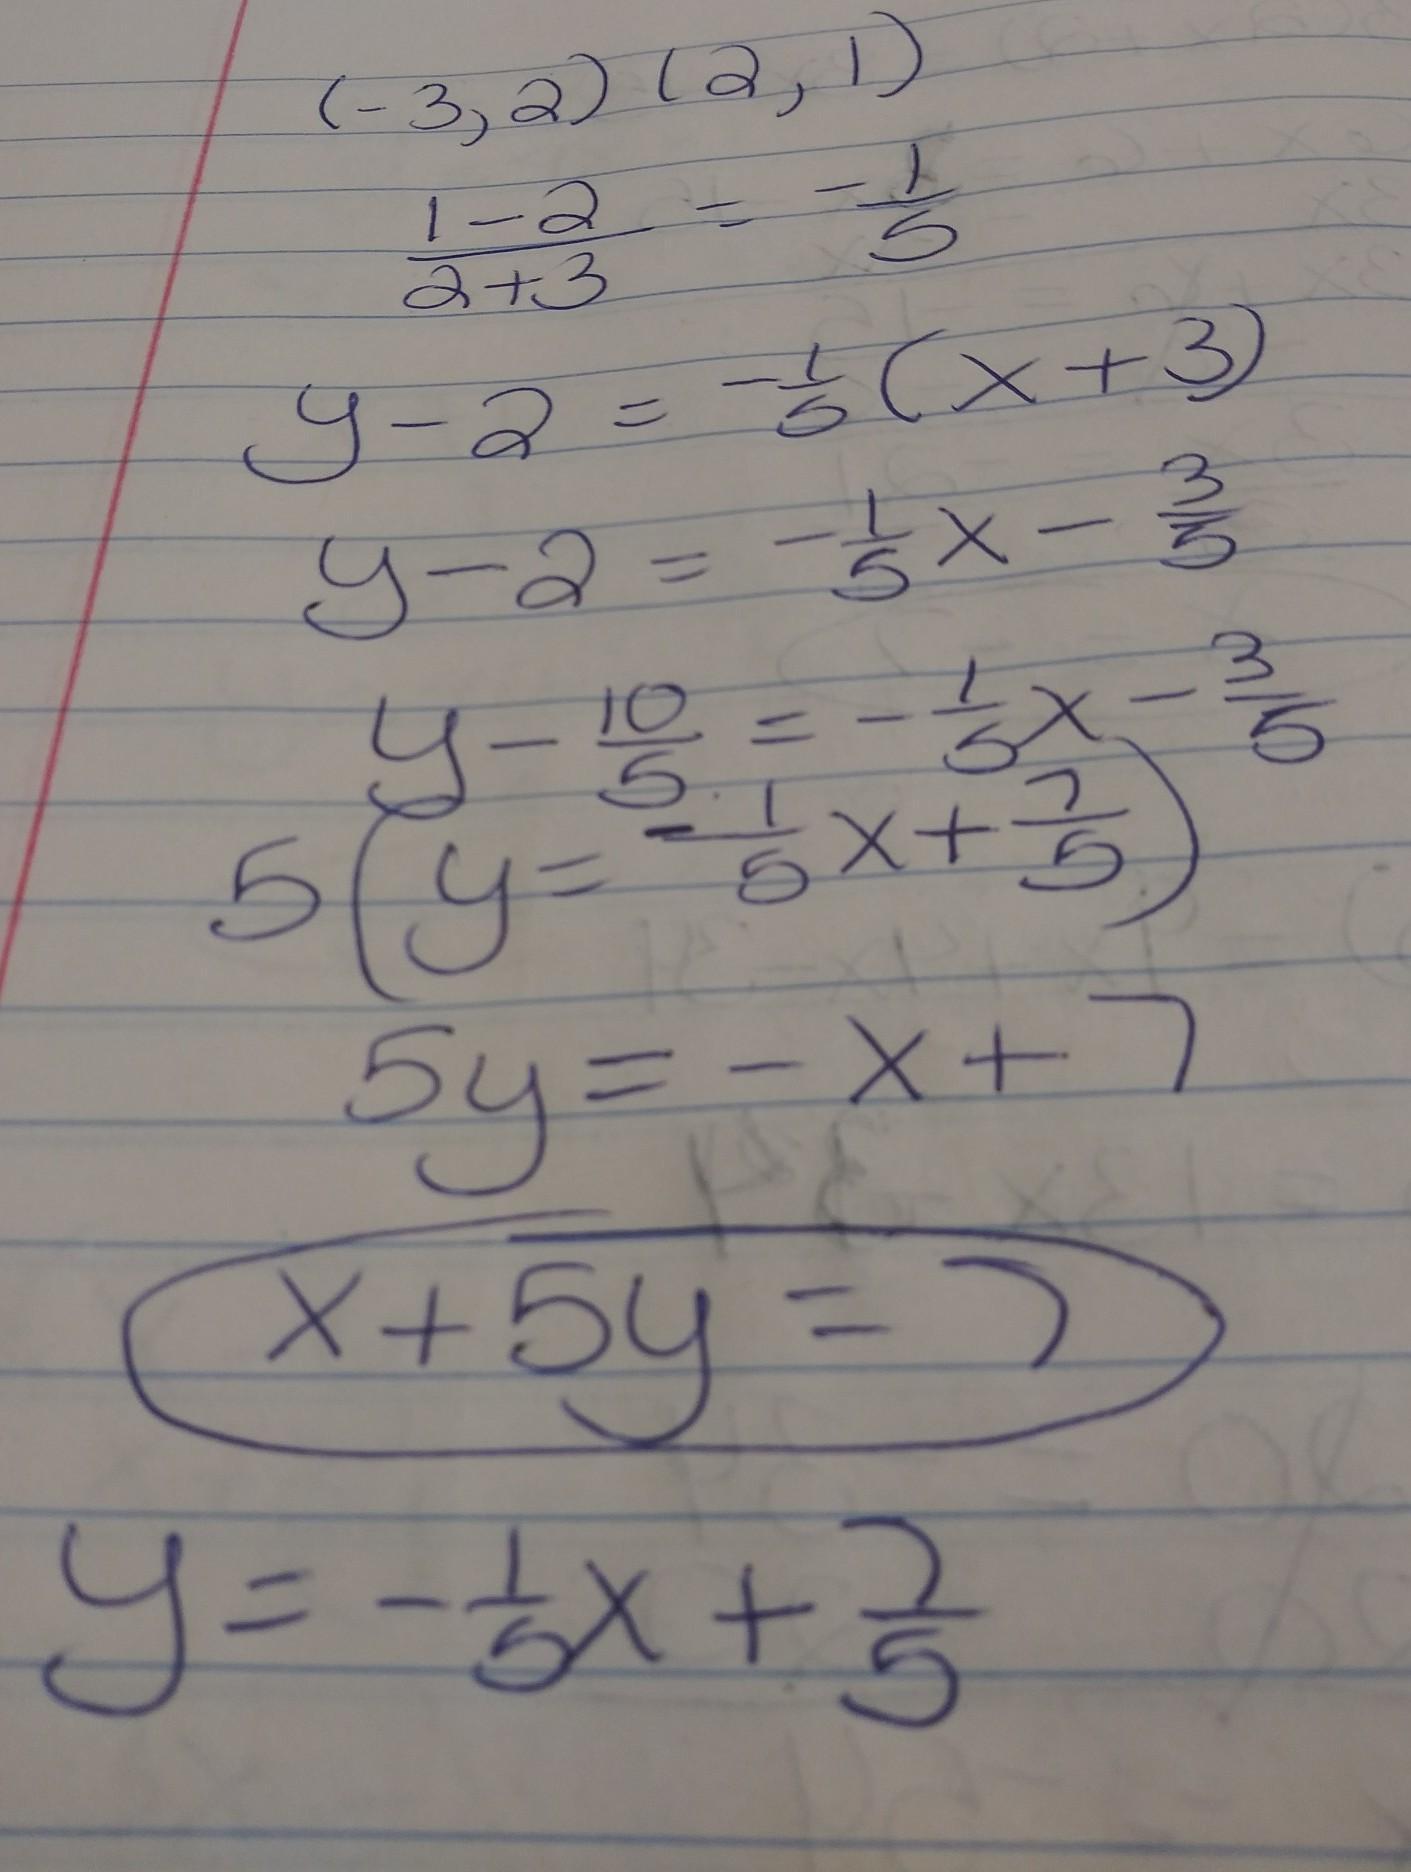 (-3,2) (2,1)
1-2/2+3 = -1/5
y-2 = -1/5(x+3)
y-2 = -1/5x - 3/5
y - 10/5 = -1/5x - 3/5
5(y = -1/5x + 7/5)
5y = -x+7
x+5y = 7
y = -1/5x + 7/5